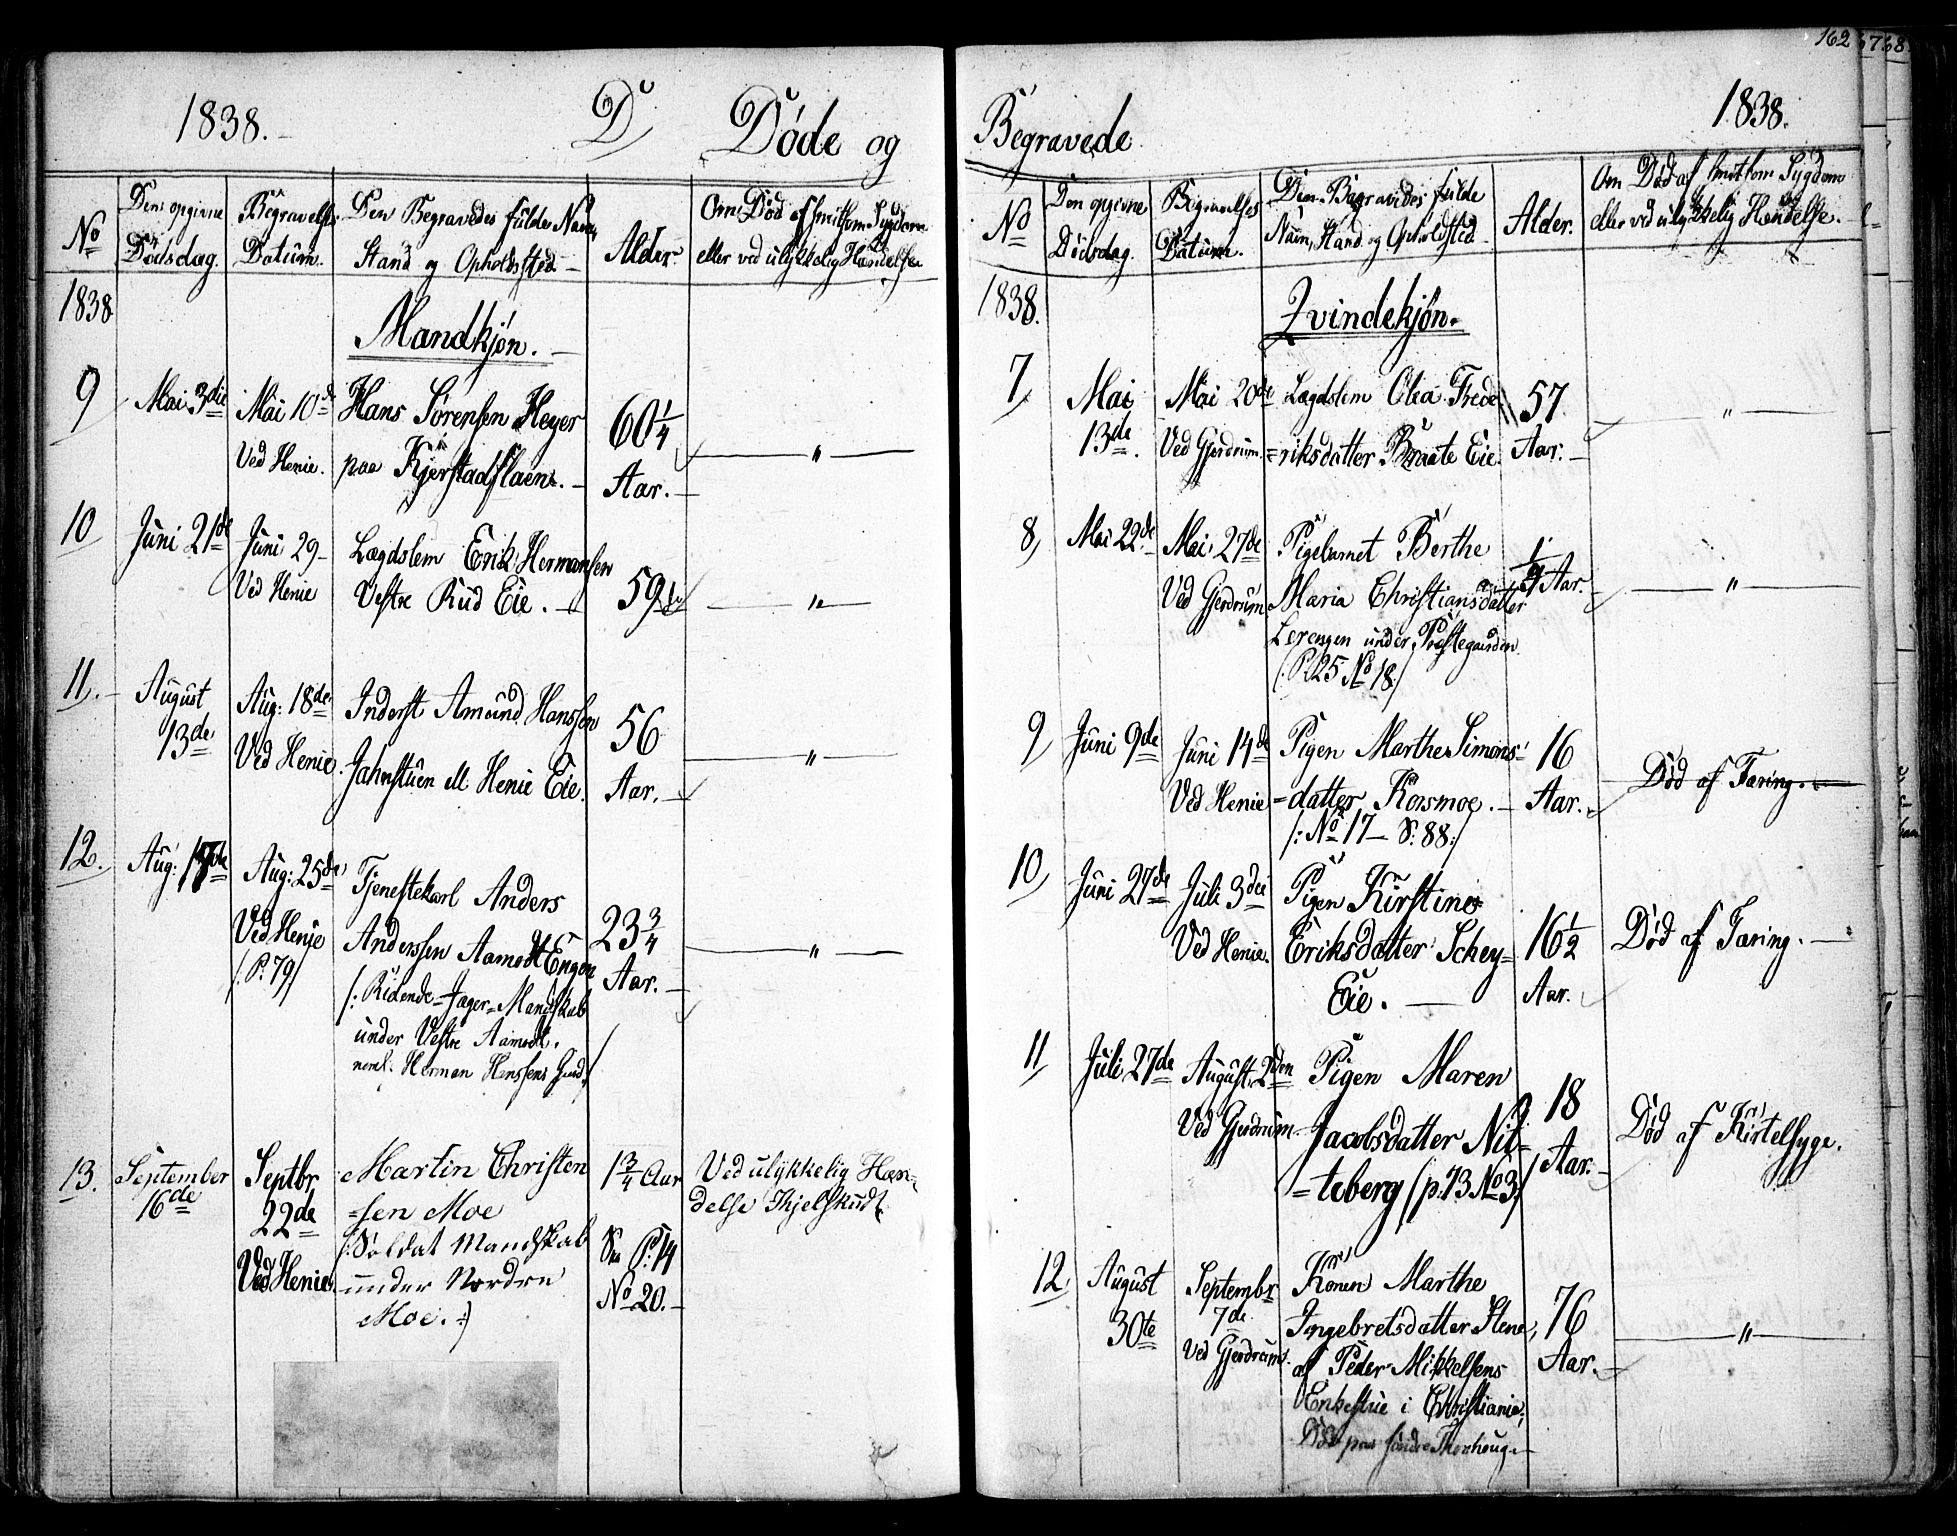 162
1838.
D
Døde og
Begravede
1838.
No
Den opgivne
Dödsdag.
Begravelses
Datum.
Den Begravedes fulde Navn,
Stand og Opholdssted
Alder.
Om Död af smitsom Sygdom
eller ved ulykkelig Hændelse
1838
Mandkjön.
9
Mai 3die
Mai 10de
Ved Henie.
Hans Sörensen Heyer
paa Kjerstadflaen.
60 1/4
Aar.
"
10
Juni 21de
Juni 29
Ved Henie
Lægdslem Erik Hermansen
Vestre Rud Eie.
59
"
11.
August
13de
Aug: 18de
Ved Henie.
Inderst Amund Hanssen
Jahnstuen ell. Henie Eie.
56
Aar.
"
12.
Aug:
Aug: 25de
Ved Henie
/: P. 79/
Tjenestekarl Anders
Anderssen Aamodt Engen
/: Ridende=Jæger=Mandskab
under Vestre Aamodt,
23 3/4
Aar.
"
13.
September
16de
Septbr
22de
Ved Henie.
Martin Christen
=sen Moe
/: Soldat Mandskab
under Nordre
Moe. :)
1 3/4 Aar
P. 14
No 20.
Ved ulykkelig Hæn-
delse Ihjelskudt
No
Den opgivne
Dödsdag.
Begravelses
Datum.
Den Begravedes fulde
Navn, Stand og Opholdsted
Alder.
Om Död af smitsom Sygdom
eller ved ulykkelig Hændelse.
1838.
Qvindekjön.
7
Mai
13de.
Mai 20de
Ved Gjerdrum.
Lægdslem Olea Frede
=riksdatter Braate Eie
57
Aar.
"
8,
Mai 22de
Mai 27de
Ved Gjerdrum
Pigebarnet Berthe
Maria Christiansdatter
Lerengen under Præstegaarden
/: P. 25 No 18/
Aar.
"
9
Juni 9de
Juni 14de
Ved Henie
Pigen Marthe Simons
=datter Kosmoe.
/: No 17 S. 88:/
16
Aar.
Död af Tæring.
10
Juni 27de
Juli 3die
Ved Henie.
Pigen Kirstine
Eriksdatter Schey=
Eie.
16 1/2
Aar.
Död af Tæring.
11
Juli 27de
August 2den
Ved Gjerdrum
Pigen Maren
Jacobsdatter Nit=
=teberg /p. 73 No 3/
18
Aar.
Död af Kirtelsyge.
12
August
30te
Septembr
7de
Ved Gjerdrum.
Konen Marthe
Ingebretsdatter Stene,
af Peder Mikkelsens
Enkestue i Christiania,
Död paa söndre Thorhoug.
76
Aar.
"